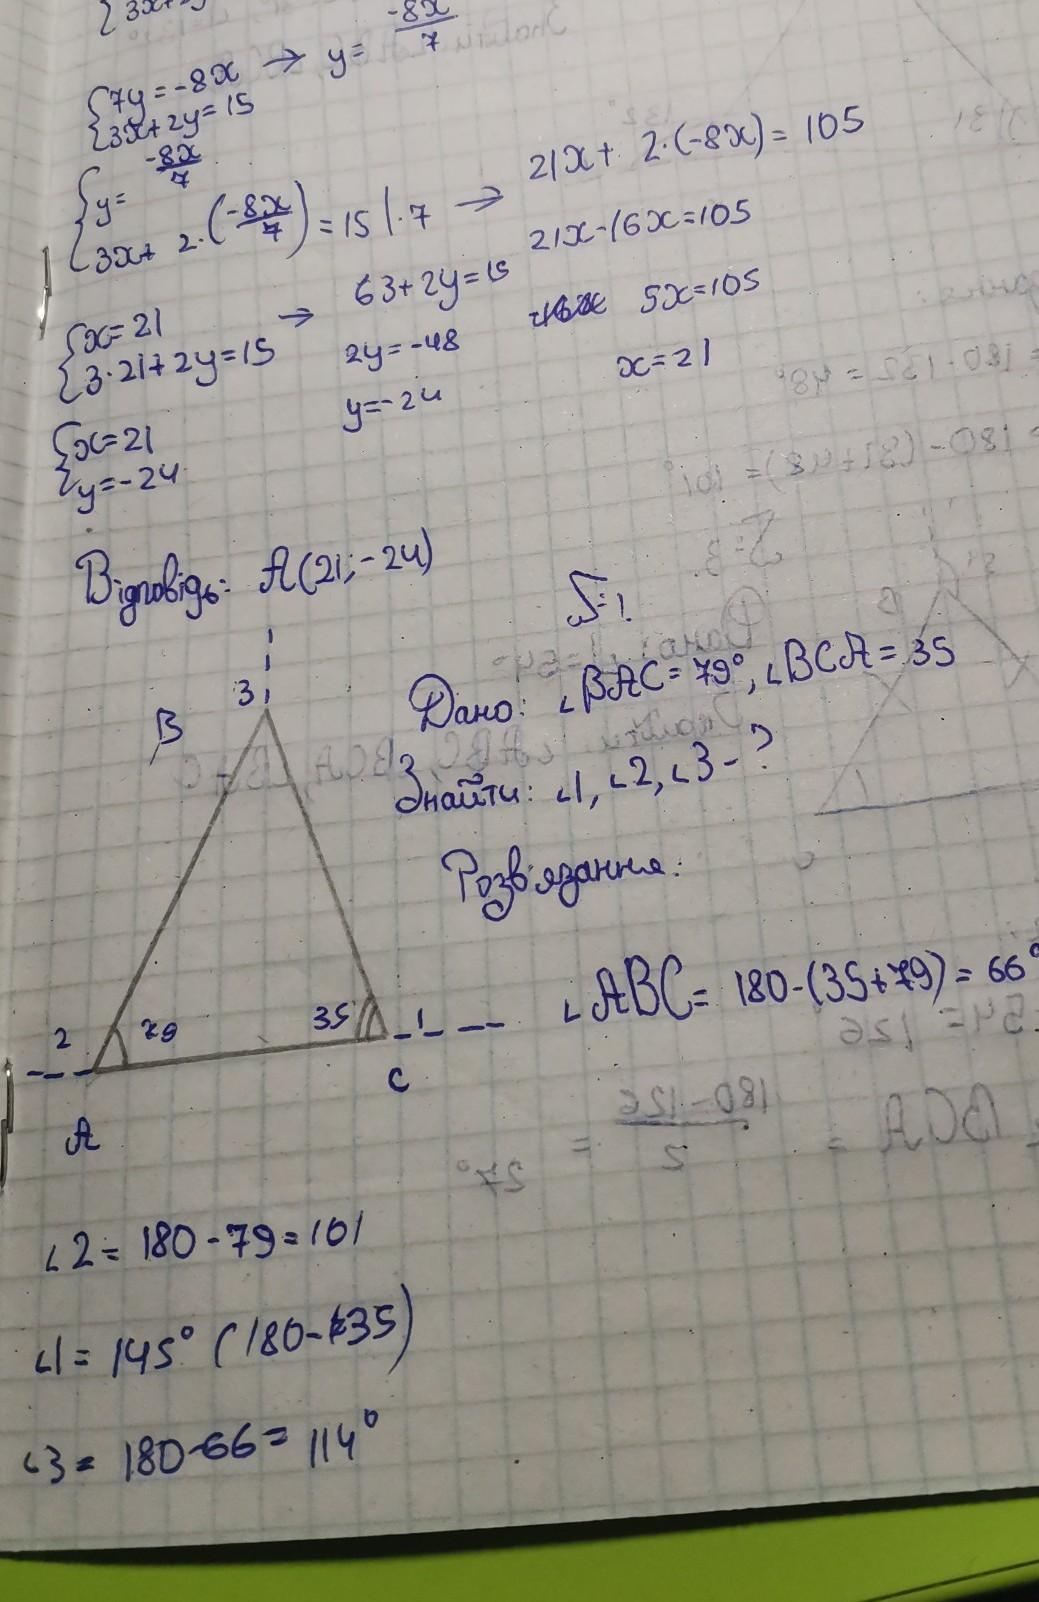 {7y = -8x → y = -8x/7
{3x + 2y = 15
{y = -8x/7
{3x + 2·(-8x/7) = 15 |·7 → 21x + 2·(-8x) = 105
21x - 16x = 105
5x = 105
x = 21
{x = 21
{3·21 + 2y = 15 → 63 + 2y = 15
2y = -48
y = -24
{x = 21
{y = -24
Відповідь: A(21; -24)
№1
Дано: ∠BAC = 79°, ∠BCA = 35
Знайти: ∠1, ∠2, ∠3 - ?
Розв'язання:
B
3
2
79
35
1
A
C
∠ABC = 180 - (35 + 79) = 66°
∠2 = 180 - 79 = 101
∠1 = 145° (180 - 35)
∠3 = 180 - 66 = 114°